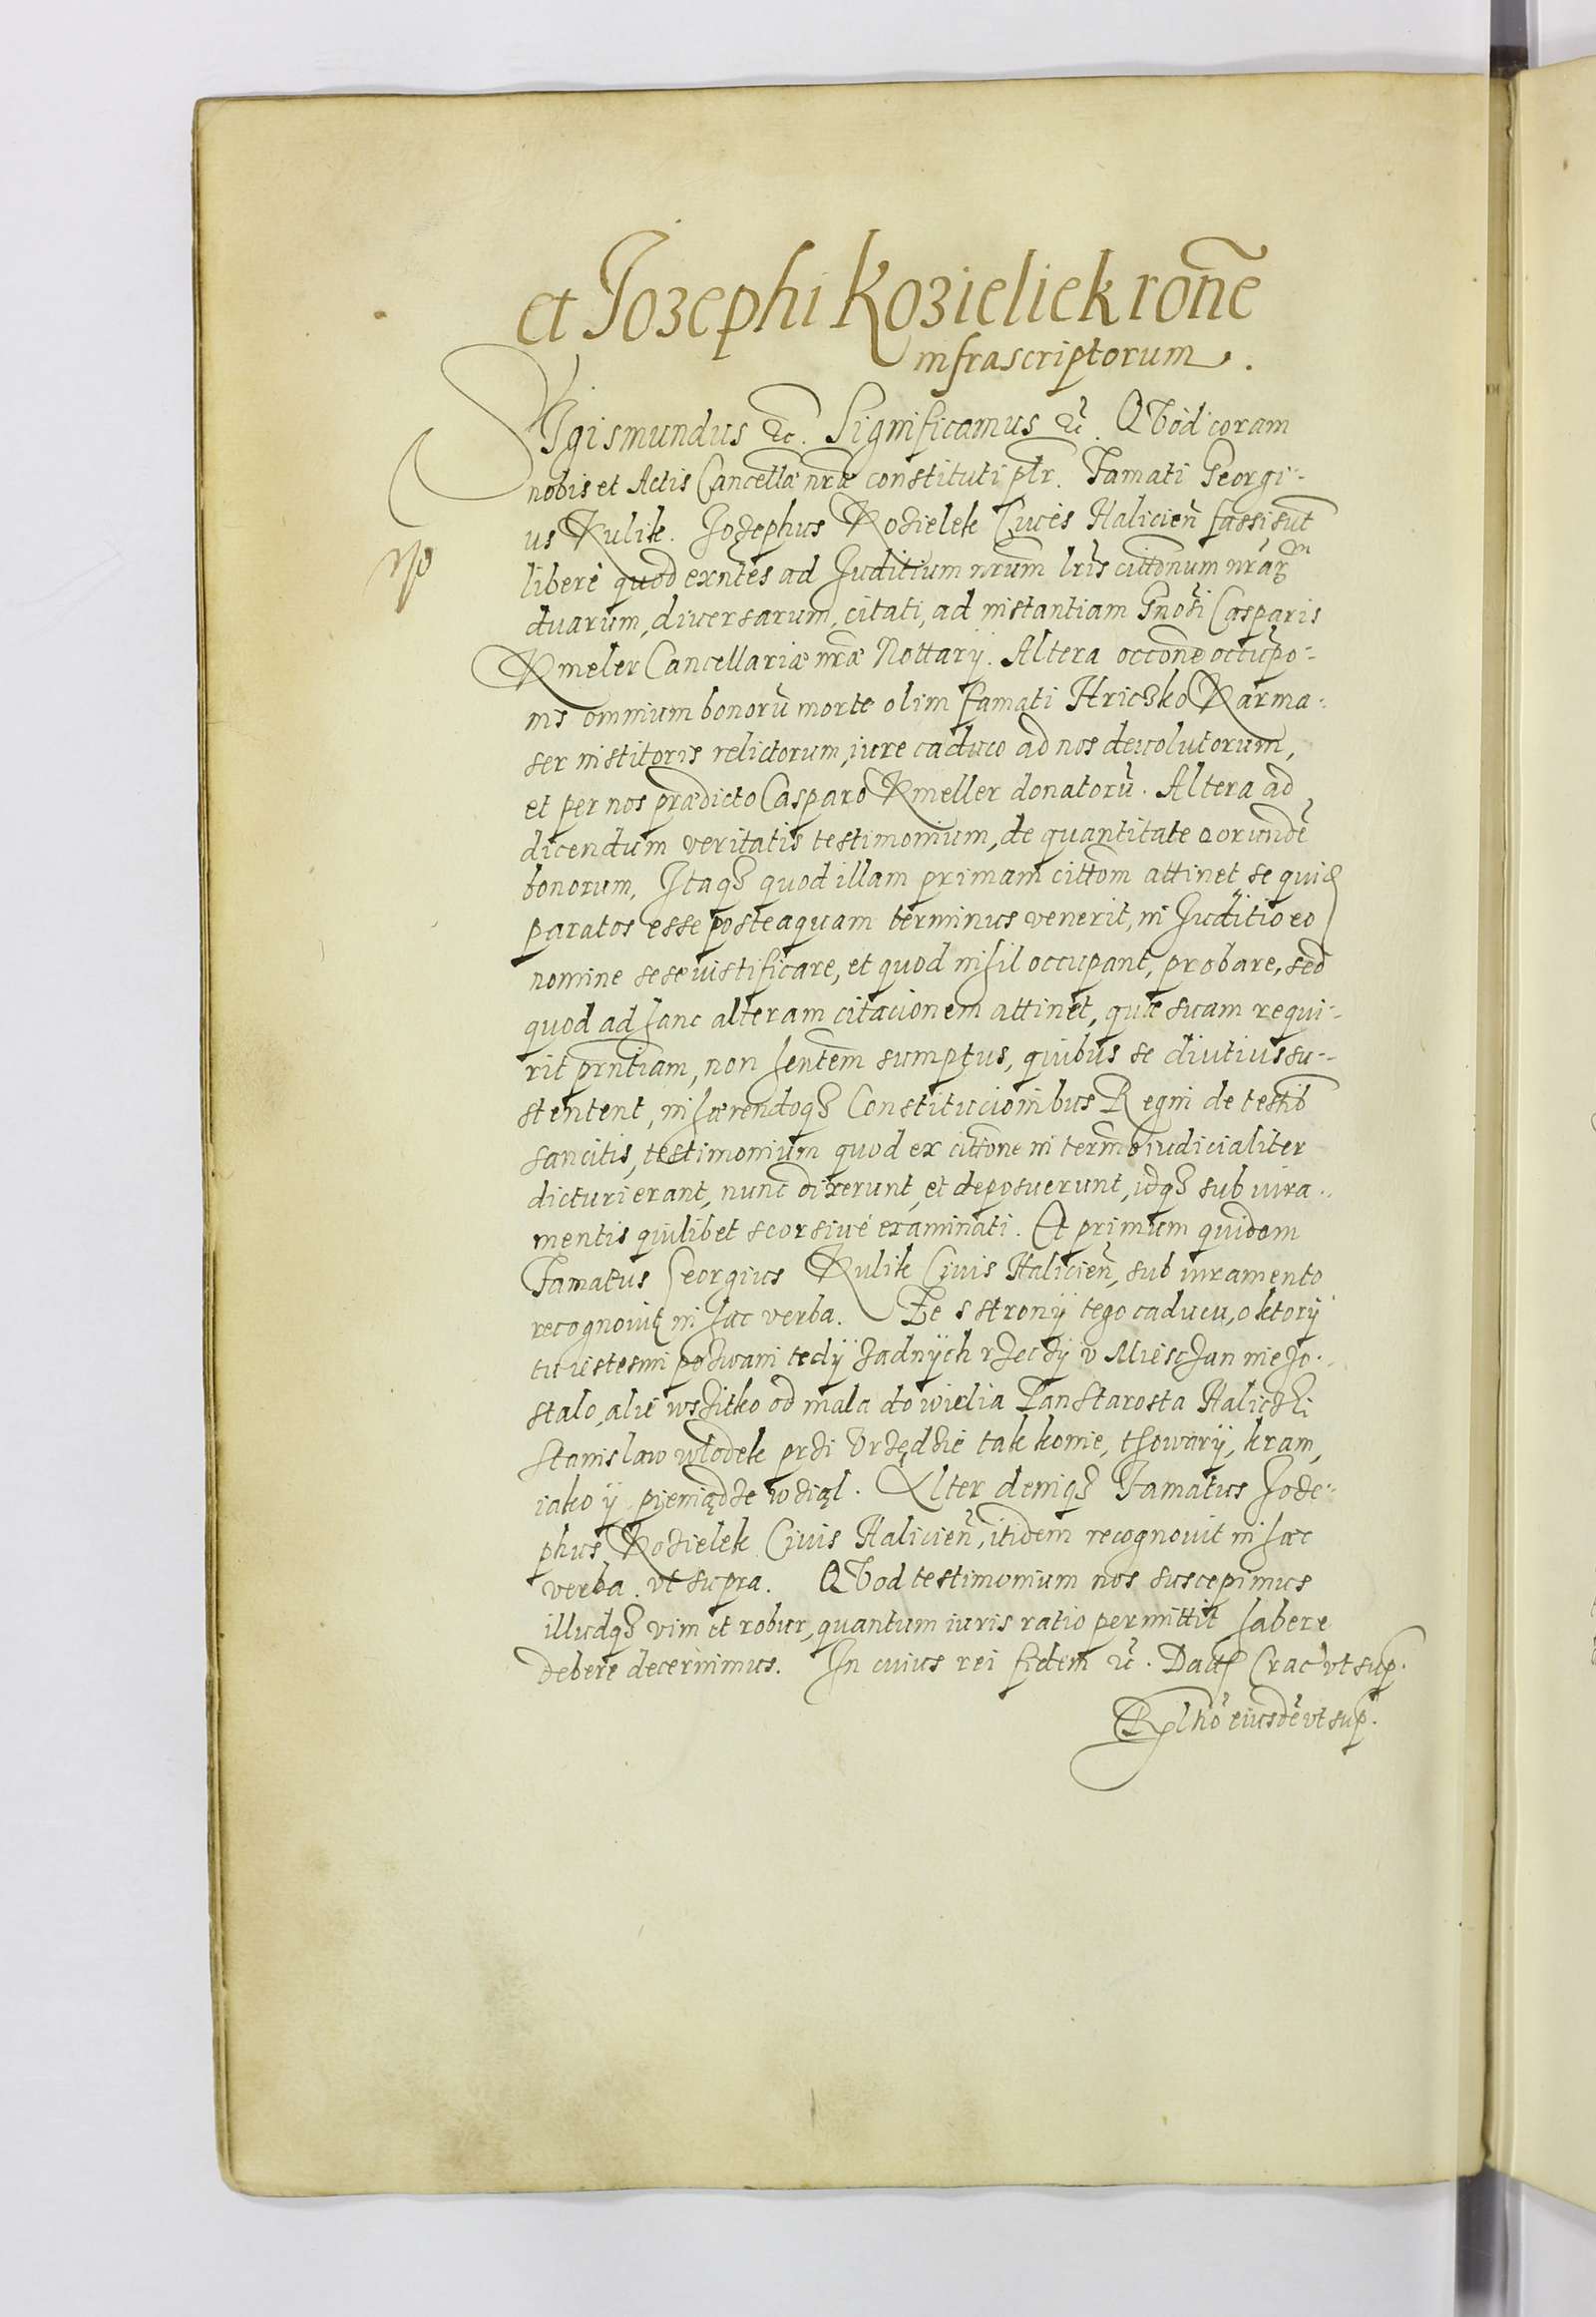 et Jozephi Kozieliek rone
infrascriptorum.
Sigismundus etc. Significamus etc. Quod coram
nobis et Actis Cancellæ nræ constituti plr. Famati Georgi-
us Kulik. Jozephus Kozielek Ciues Halicien̄ fassi sunt
libere quod exn̄tes ad Juditium nrūm lris cittōnum nrār
duarum, diuersarum, citati, ad instantiam Gnosi Casparis
Kmeler Cancellariæ nræ Nottarij. Altera occōne occupo-
nis omnium bonorū morte olim famati Hriczko Karma-
ser institoris relictorum, iure caduco ad nos deuolutorum,
et per nos prædicto Casparo Kmeller donatorū. Altera ad
dicendum veritatis testimonium, de quantitate eorundē
bonorum, Itaqz quod illam primam cittōm attinet se quid
paratos esse posteaquam terminus venerit, in Juditio eo
nomine sese iustificare, et quod nihil occupant, probare, sed
quod ad hanc alteram citacionem attinet, quæ suam requi-
rit prn̄tiam, non hentēm sumptus, quibus se diutius su-
stentent, inhærendoqz Constitucionibus Regni de testib
sancitis, testimonium quod ex cittōne in termō iudicialiter
dicturi erant, nunc dixerunt, et deposuerunt, idqz sub iura-
mentis quilibet seorsiue examinati. Et primum quidem
Famatus Georgius Kulik Ciuis Halicien̄, sub iuramento
recognouit in hæc verba. Że s strony tego caducu, o ktorÿ
tu iestesmi pozwani tedÿ żadnÿch rzeczÿ v Miesczan nie zo-
stalo, alie wszitko od mala do wielia Pan Starosta Haliczki
Stanislaw wlodek przi Vrzędzie tak konie, thowarÿ, kram,
iako ÿ pieniądze wziąl. Alter deniqz Famatus Joze-
phus Kozielek Ciuis Halicien̄, itidem recognouit in hæc
verba. vt supra. Quod testimonium nos suscepimus
illudqz vim et robur, quantum iuris ratio permittit habere
debere decernimus. In cuius rei fidem etc. Datt Crac vt sup.
Rltio eiusdē vt sup.